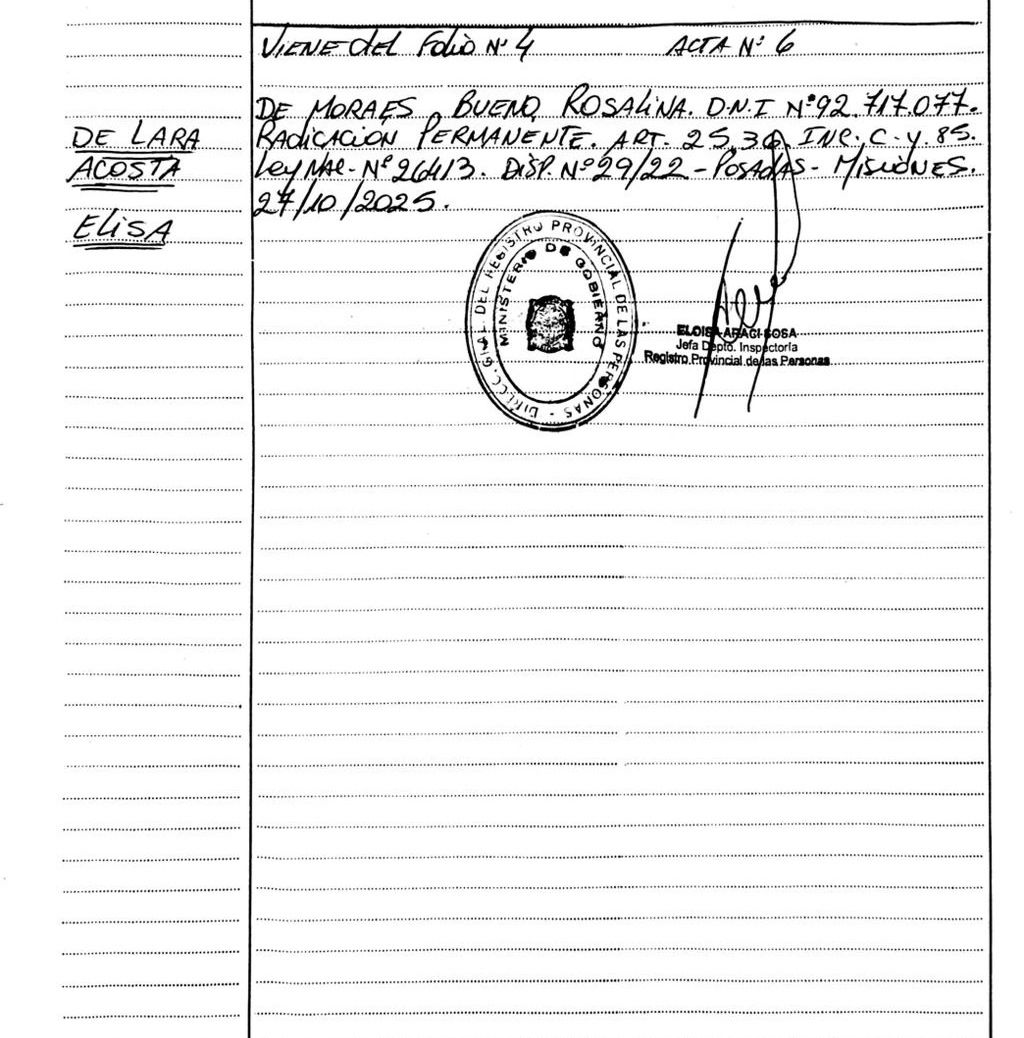 VIENE del Folio Nº 4 ACTA Nº 6
DE LARA
ACOSTA
ELISA
DE MORAES BUENO, ROSALINA. D.N.I Nº 92.717.077.
RADICACION PERMANENTE. ART. 25.36 INC. C. y. 85.
Ley NAC. Nº 26413. DISP. Nº 29/22 - POSADAS - MISIONES.
27/10/2025.
DIRECC. GRAL. DEL REGISTRO PROVINCIAL DE LAS PERSONAS -
MINISTERIO DE GOBIERNO
ELOISA ARACI SOSA
Jefa Depto. Inspectoría
Registro Provincial de las Personas